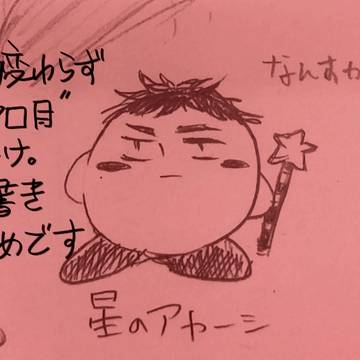 変わらず
け。
書き
めです
なんすか
星のアカーシ